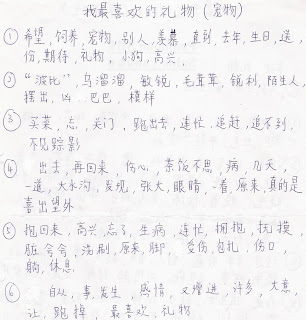 我最喜欢的礼物（宠物）
① 希望，饲养，宠物，别人，羡慕，直到，去年，生日，送，
份，期待，礼物，小狗，高兴，
② “波比”，乌溜溜，敏锐，毛茸茸，锐利，陌生人，
摆出，凶，巴巴，模样
③ 买菜，忘，关门，跑出去，连忙，追赶，追不到，
不见踪影
④ 出去，再回来，伤心，茶饭不思，病，几天，
一道，大水沟，发现，张大，眼睛，看，原来，真的是
喜出望外
⑤ 抱回来，高兴，忘了，生病，连忙，拥抱，抚摸，
脏兮兮，洗刷，原来，脚，受伤，包扎，伤口，
躺，休息
⑥ 自从，事，发生，感情，又增进，许多，大意，
让，跑掉，最喜欢，礼物